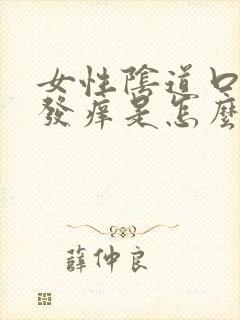 女性陰道口
發癢是怎麼
薛仲良